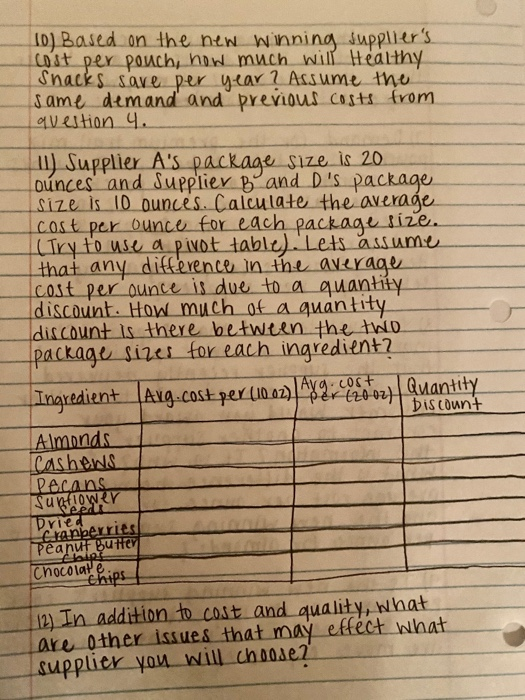 10) Based on the new winning supplier's
cost per pouch, how much will Healthy
Snacks save per year? Assume the
same demand and previous costs from
question 4.
11) Supplier A's package size is 20
ounces and Supplier B and D's package
size is 10 ounces. Calculate the average
cost per ounce for each package size.
(Try to use a pivot table). Lets assume
that any difference in the average
cost per ounce is due to a quantity
discount. How much of a quantity
discount is there between the two
package sizes for each ingredient?
Ingredient Avg. cost per (10 oz) Avg. cost per (20 oz) Quantity Discount
Almonds
Cashews
Pecans
Sunflower Seeds
Dried Cranberries
Peanut Butter Chips
Chocolate Chips
12) In addition to cost and quality, what
are other issues that may effect what
supplier you will choose?